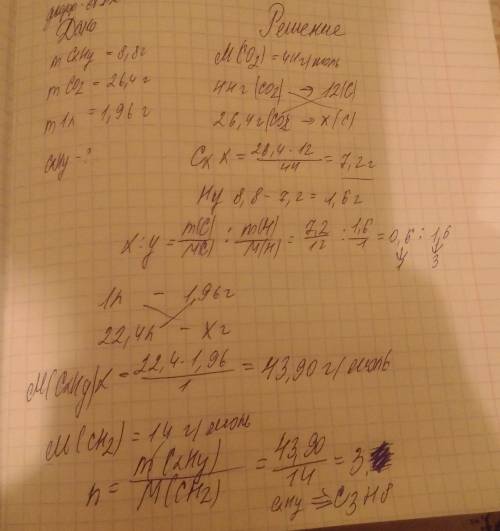 Дано
Решение
m CxHy = 8,8г
m CO2 = 26,4г
m 1л = 1,96г
CxHy - ?
M(CO2) = 44г/моль
44г (CO2) → 12(C)
26,4г (CO2) → x (C)
Cx x = 26,4 · 12 / 44 = 7,2г
Hy 8,8 - 7,2 = 1,6г
x : y = m(C) / M(C) : m(H) / M(H) = 7,2 / 12 : 1,6 / 1 = 0,6 : 1,6
1 3
1л - 1,96г
22,4л - Xг
M(CxHy) X = 22,4 · 1,96 / 1 = 43,90 г/моль
M(CH2) = 14 г/моль
n = m(CxHy) / M(CH2) = 43,90 / 14 = 3
CxHy ⇒ C3H8